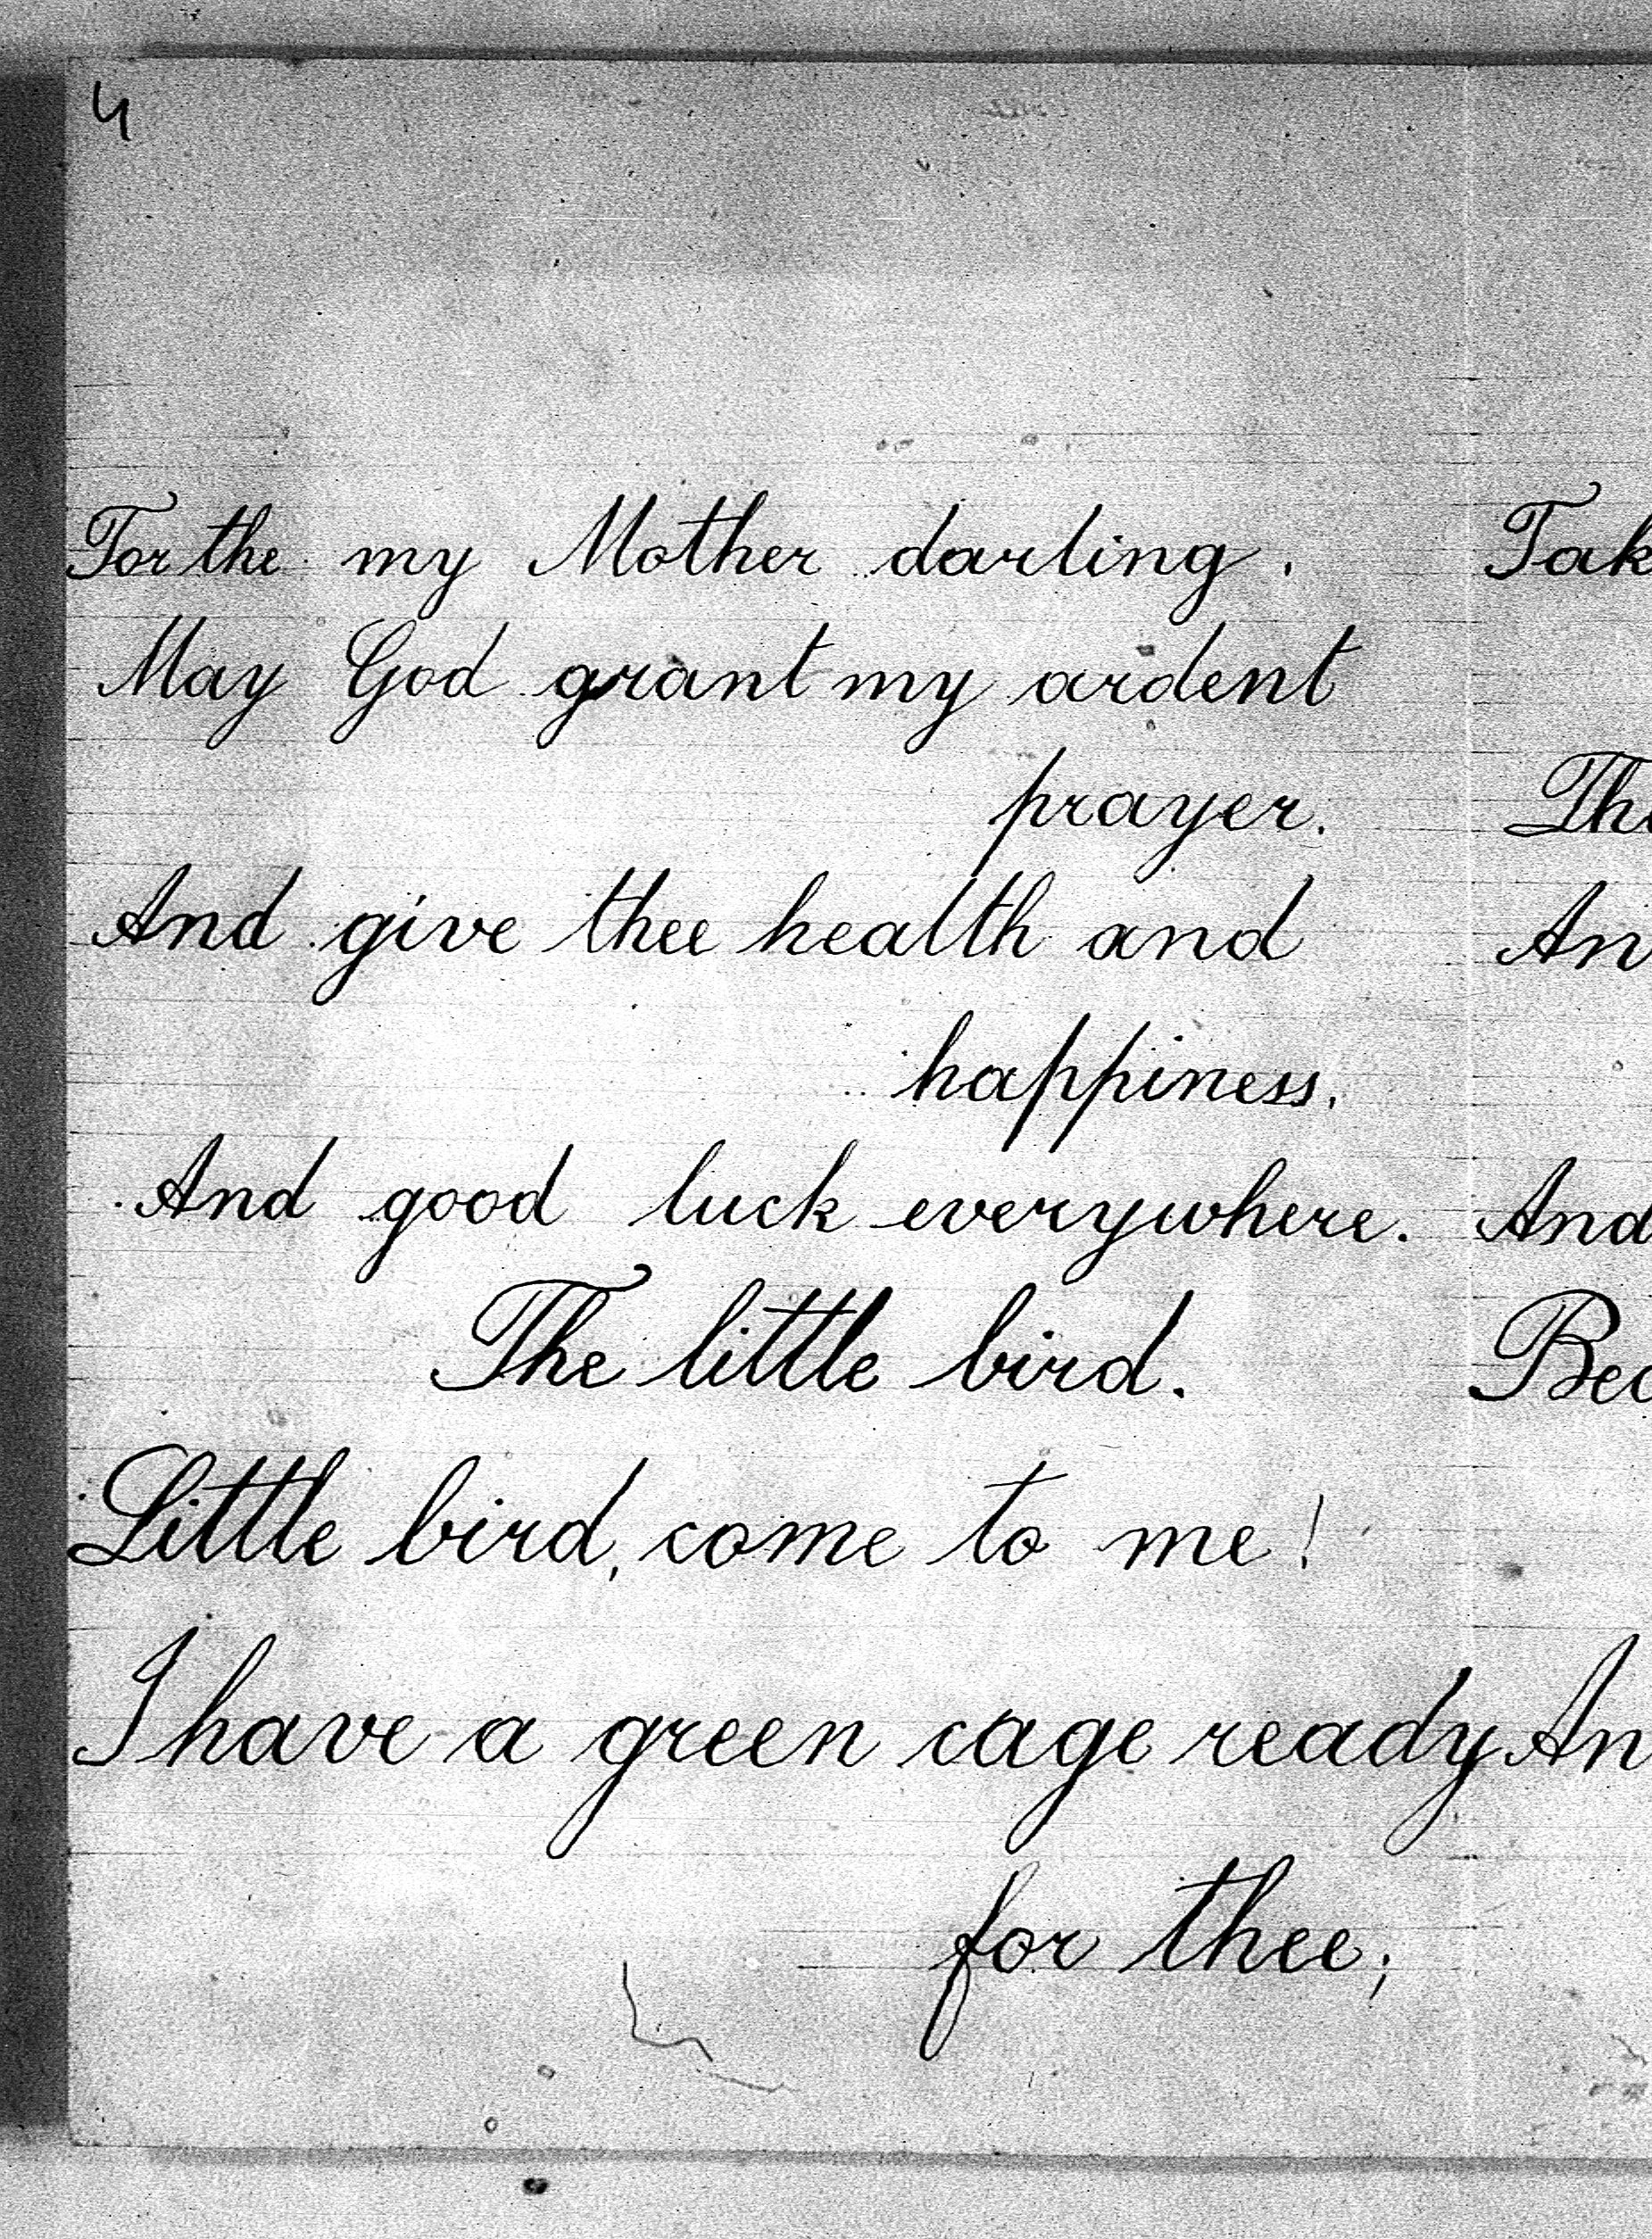 4
For the my Mother darling.
May God grant my ardent
prayer.
And give thee health and
happiness.
And good luck everywhere.
The little bird.
Little bird, come to me!
I have a green cage ready
for thee;
Tak
The
An
And
Bec
An